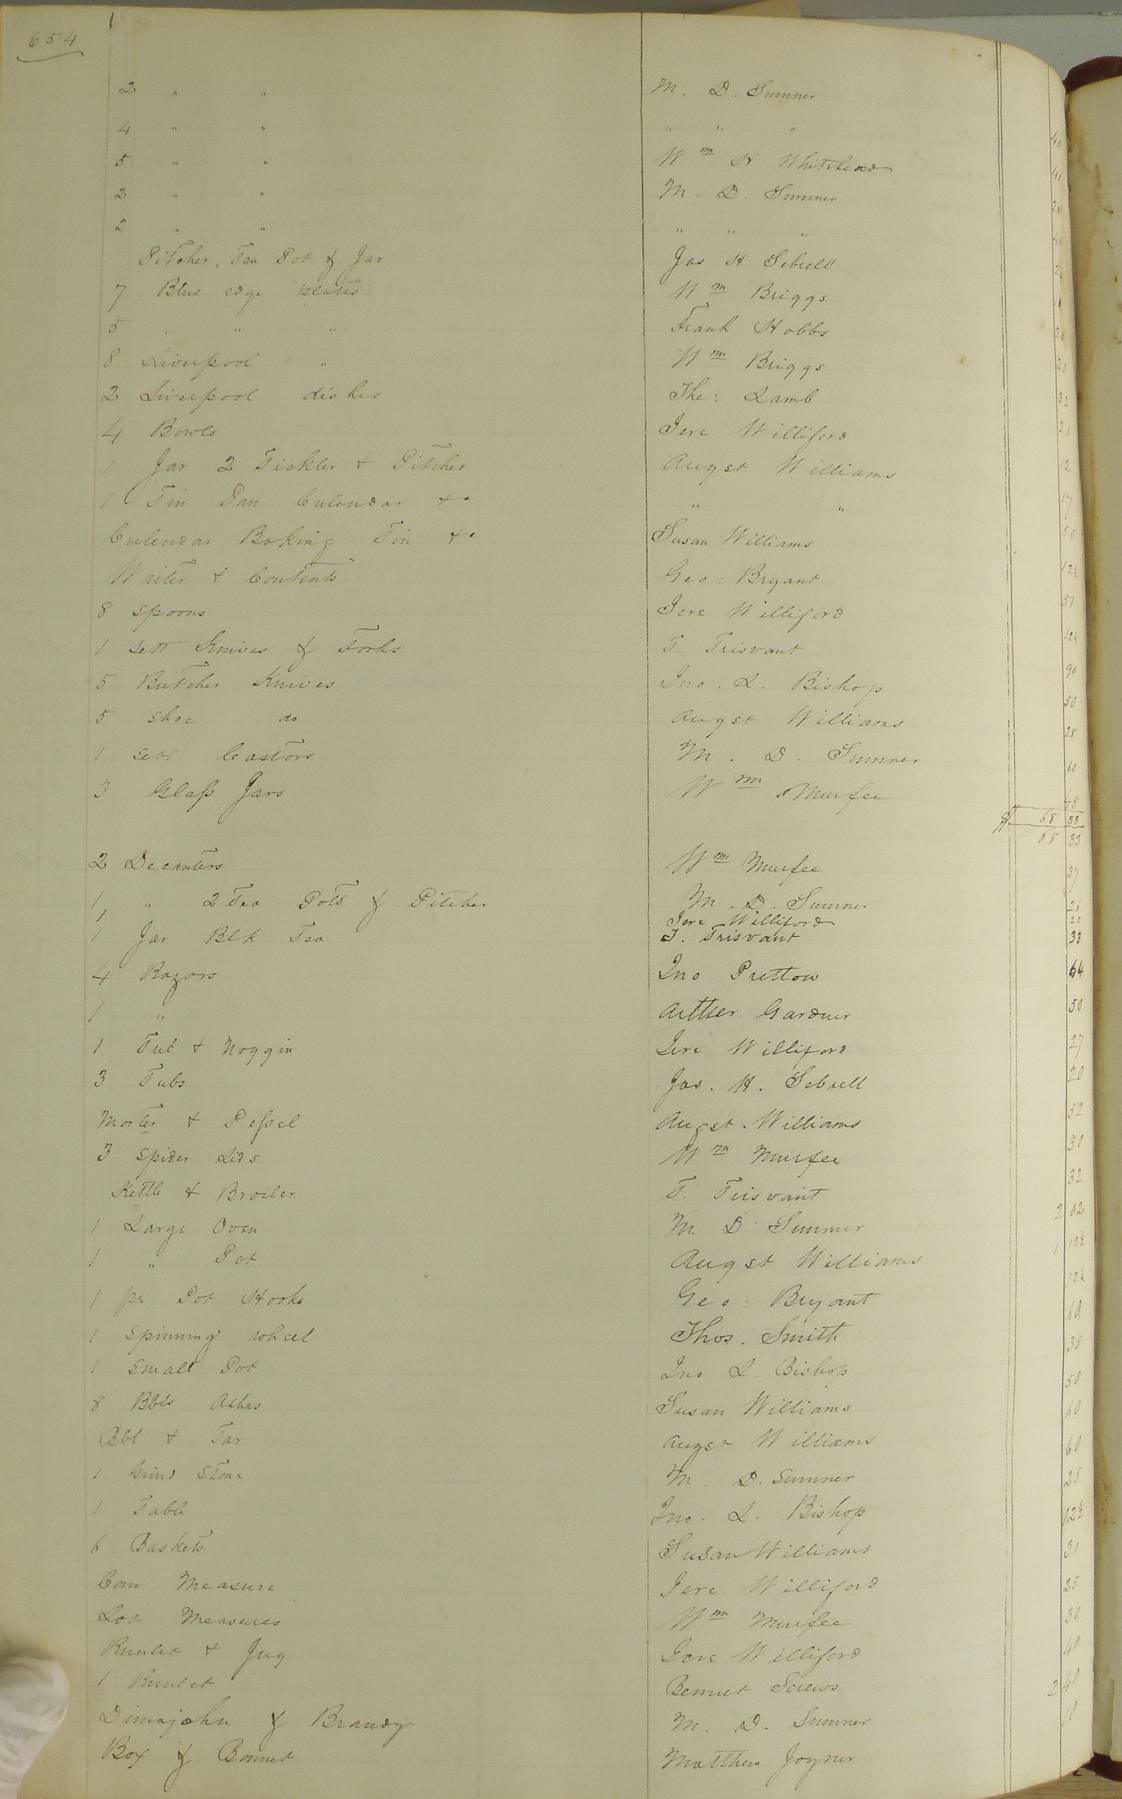 654
2 " " M. D. Sumner
4 " " " " " 40
5 " " Wm H Whitehead 41
2 " " M. D. Sumner
2 " " " " "
Pitcher, Tea Pot & Jar Jas H Sebrell
7 Blue edge plates Wm Briggs
5 " " " Frank Hobbs
8 Liverpool " Wm Briggs
2 Liverpool dishes The: Lamb
4 Bowls Jere Williford
1 Jar 2 Tickler & Pitcher Augst Williams 12
1 Tin Pan Culendar &c " "
Culendar Baking Tin &c Susan Williams 50
Waiter & Contents Geo: Bryant 12½
8 Spoons Jere Williford 51
1 sett Knives & Forks T. Trisvant 12½
5 Butcher Knives Jno. L. Bishop 90
5 Shoe do Augst Williams 50
1 sett Castors M. D. Sumner 28
3 Glass Jars Wm Murfee 60
$ 68 33
68 33
2 Decanters Wm Murfee 37
1 " 2 Tea Pots & Pitcher M. D. Sumner 26
1 Jere Williford 20
1 Jar Blk Tea T. Trisvant 33
4 Razors Jno Prettow 64
1 " Arther Gardner 50
1 Tub & Noggin Jere Williford 27
3 Tubs Jas. H. Sebrell 20
Morter & Pessel Augst. Williams 52
3 Spider Lids Wm Murfee 30
Kettle & Broiler T. Trisvant 32
1 Large Oven M. D. Sumner 2 02
1 " Pot Augst Williams 1 12½
1 pr Pot Hooks Geo: Bryant 12½
1 Spinning wheel Thos. Smith 60
1 Small Pot Jno L. Bishop 35
8 Bbls Ashes Susan Williams 50
Bbl & Tar Augst Williams 60
1 Grind Stone M. D. Sumner 60
1 Table Jno. L. Bishop 25
6 Baskets Susan Williams 12½
Corn Measure Jere Williford 31
Lot Measures Wm Murfee 25
Runlet & Jug Jere Williford 30
1 Runlet Bennet Screws 40
Dimajohn & Brandy M. D. Sumner 2 40
Box & Bonnet Matthew Joyner 10